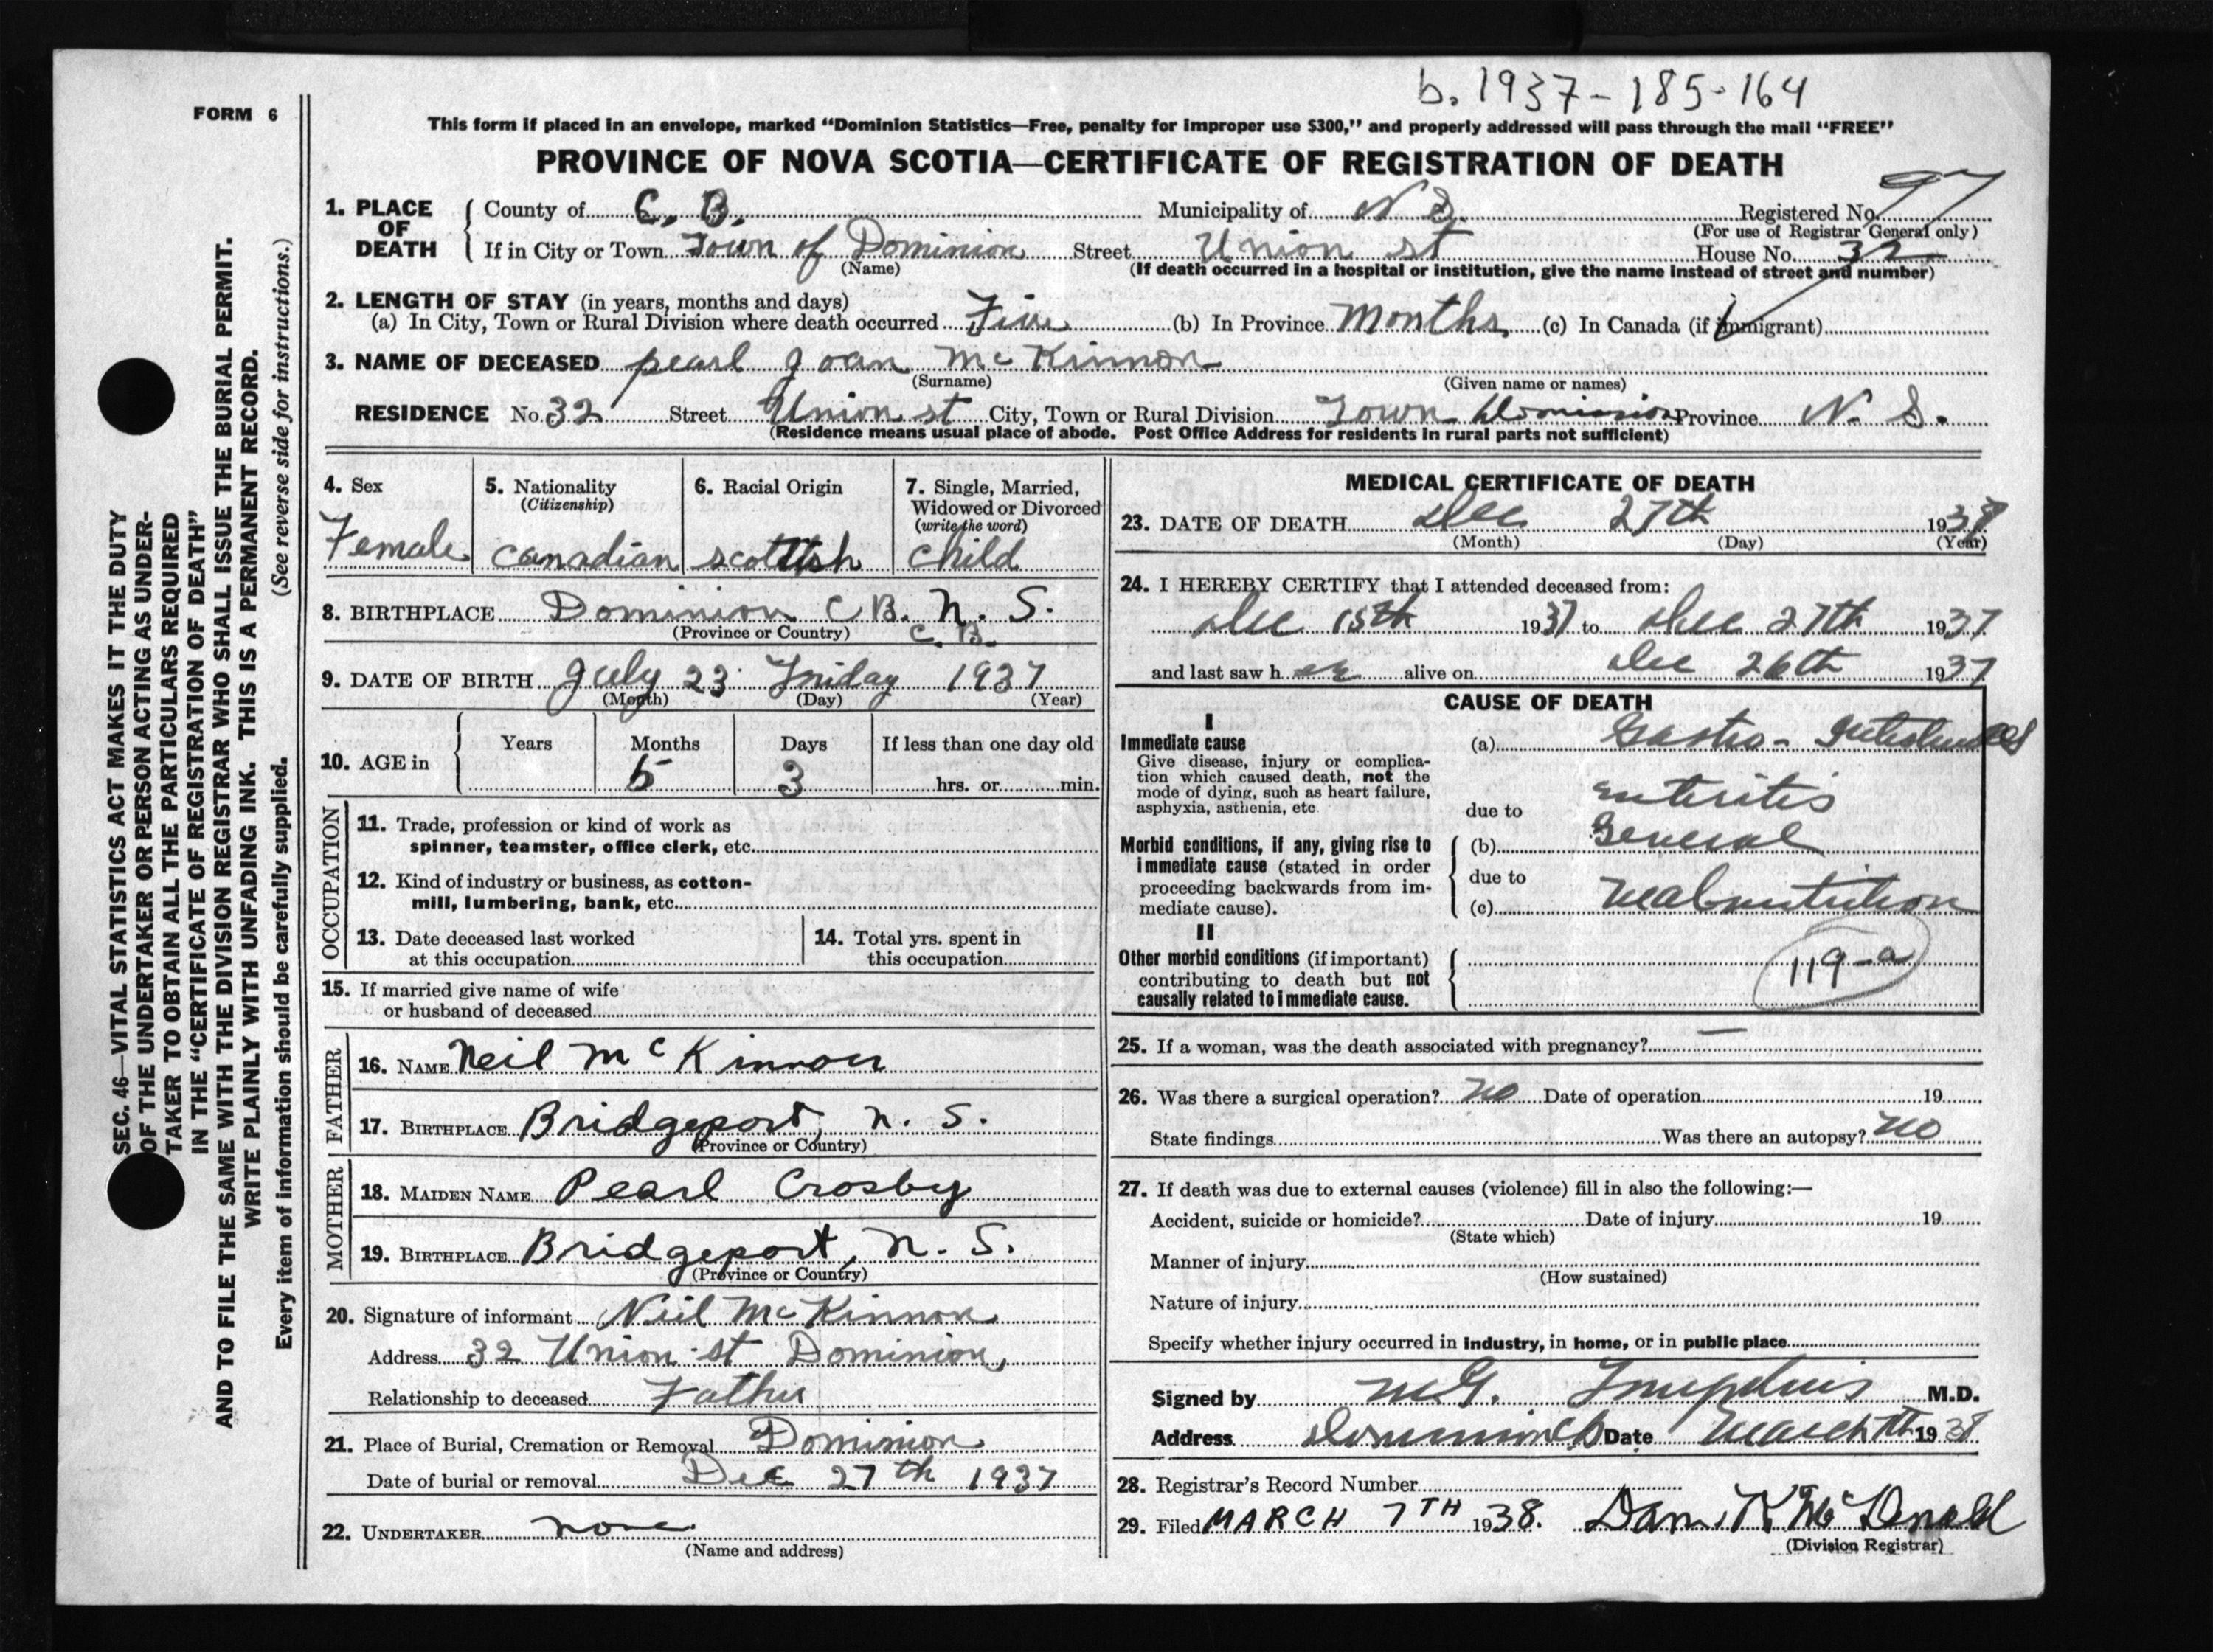 b. 1937-185-164
FORM 6
This form if placed in an envelope, marked "Dominion Statistics—Free, penalty for improper use $300," and properly addressed will pass through the mail "FREE"
PROVINCE OF NOVA SCOTIA—CERTIFICATE OF REGISTRATION OF DEATH
1. PLACE OF DEATH { County of C. B. Municipality of N S. Registered No. 97
(For use of Registrar General only)
If in City or Town Town of Dominion Street Union st House No. 32
(Name) (If death occurred in a hospital or institution, give the name instead of street and number)
2. LENGTH OF STAY (in years, months and days)
(a) In City, Town or Rural Division where death occurred Five (b) In Province Months (c) In Canada (if immigrant)
3. NAME OF DECEASED pearl Joan McKinnon
(Surname) (Given name or names)
RESIDENCE No. 32 Street Union st City, Town or Rural Division Town Dominion Province N. S.
(Residence means usual place of abode. Post Office Address for residents in rural parts not sufficient)
4. Sex
Female
5. Nationality
(Citizenship)
Canadian
6. Racial Origin
scottish
7. Single, Married,
Widowed or Divorced
(write the word)
child
8. BIRTHPLACE Dominion C B. N. S.
(Province or Country) C. B.
9. DATE OF BIRTH July 23 Friday 1937
(Month) (Day) (Year)
10. AGE in { Years Months Days If less than one day old
5 3 hrs. or min.
OCCUPATION
11. Trade, profession or kind of work as
spinner, teamster, office clerk, etc.
12. Kind of industry or business, as cotton-
mill, lumbering, bank, etc.
13. Date deceased last worked
at this occupation
14. Total yrs. spent in
this occupation
15. If married give name of wife
or husband of deceased
FATHER
16. NAME Neil McKinnon
17. BIRTHPLACE Bridgeport, N. S.
(Province or Country)
MOTHER
18. MAIDEN NAME Pearl Crosby
19. BIRTHPLACE Bridgeport, N. S.
(Province or Country)
20. Signature of informant Neil McKinnon
Address 32 Union st Dominion,
Relationship to deceased Father
21. Place of Burial, Cremation or Removal Dominion
Date of burial or removal Dec 27th 1937
22. UNDERTAKER none
(Name and address)
MEDICAL CERTIFICATE OF DEATH
23. DATE OF DEATH Dec 27th 1937
(Month) (Day) (Year)
24. I HEREBY CERTIFY that I attended deceased from:
Dec 15th 1937 to Dec 27th 1937
and last saw h er alive on Dec 26th 1937
CAUSE OF DEATH
I
Immediate cause (a) Gastro-
Give disease, injury or complica-
tion which caused death, not the
mode of dying, such as heart failure,
asphyxia, asthenia, etc.
enteritis
due to
Morbid conditions, if any, giving rise to
immediate cause (stated in order
proceeding backwards from im-
mediate cause).
(b) General
due to
(c) Malnutrition
II
Other morbid conditions (if important)
contributing to death but not
causally related to immediate cause.
119-a
25. If a woman, was the death associated with pregnancy? —
26. Was there a surgical operation? no Date of operation 19
State findings Was there an autopsy? no
27. If death was due to external causes (violence) fill in also the following:—
Accident, suicide or homicide? Date of injury 19
(State which)
Manner of injury
(How sustained)
Nature of injury
Specify whether injury occurred in industry, in home, or in public place
Signed by M.G. M.D.
Address Dominion CB Date March 7th 1938
28. Registrar's Record Number
29. Filed MARCH 7TH 1938. Dan. K McDonald
(Division Registrar)
SEC. 46—VITAL STATISTICS ACT MAKES IT THE DUTY
OF THE UNDERTAKER OR PERSON ACTING AS UNDER-
TAKER TO OBTAIN ALL THE PARTICULARS REQUIRED
IN THE "CERTIFICATE OF REGISTRATION OF DEATH"
AND TO FILE THE SAME WITH THE DIVISION REGISTRAR WHO SHALL ISSUE THE BURIAL PERMIT.
WRITE PLAINLY WITH UNFADING INK. THIS IS A PERMANENT RECORD.
Every item of information should be carefully supplied. (See reverse side for instructions.)